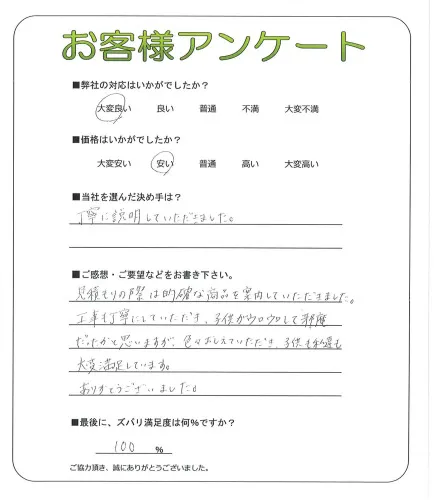 お客様アンケート
■弊社の対応はいかがでしたか？
大変良い 良い 普通 不満 大変不満
■価格はいかがでしたか？
大変安い 安い 普通 高い 大変高い
■当社を選んだ決め手は？
丁寧に説明していただきました。
■ご感想・ご要望などをお書き下さい。
見積もりの際は的確な商品を案内していただきました。
工事も丁寧にしていただき、子供がウロウロして邪魔
だったかと思いますが、色々おしえていただき、子供も私達も
大変満足しています。
ありがとうございました。
■最後に、ズバリ満足度は何％ですか？
100 %
ご協力頂き、誠にありがとうございました。